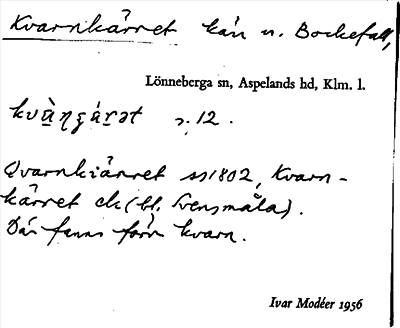 Kvarnkärret kärr n. Bockefall,
Lönneberga sn, Aspelands hd, Klm. l.
s. 12.
Qvarnkiärret ss 1802, Kvarn-
kärret ek (bl. Svensmåla).
Där fanns förr kvarn.
Ivar Modéer 1956